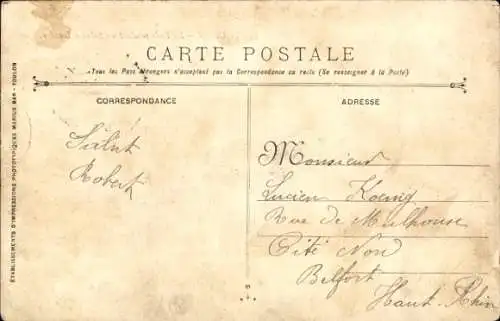 CARTE POSTALE
Tous les Pays étrangers n'acceptent pas la Correspondance au recto (Se renseigner à la Poste)
CORRESPONDANCE
ADRESSE
Salut
Robert
Monsieur
Lucien Koenig
Rue de Mulhouse
Cité Nord
Belfort
Haut-Rhin
ÉTABLISSEMENTS D'IMPRESSIONS PHOTOTYPIQUES MARIUS BAR - TOULON